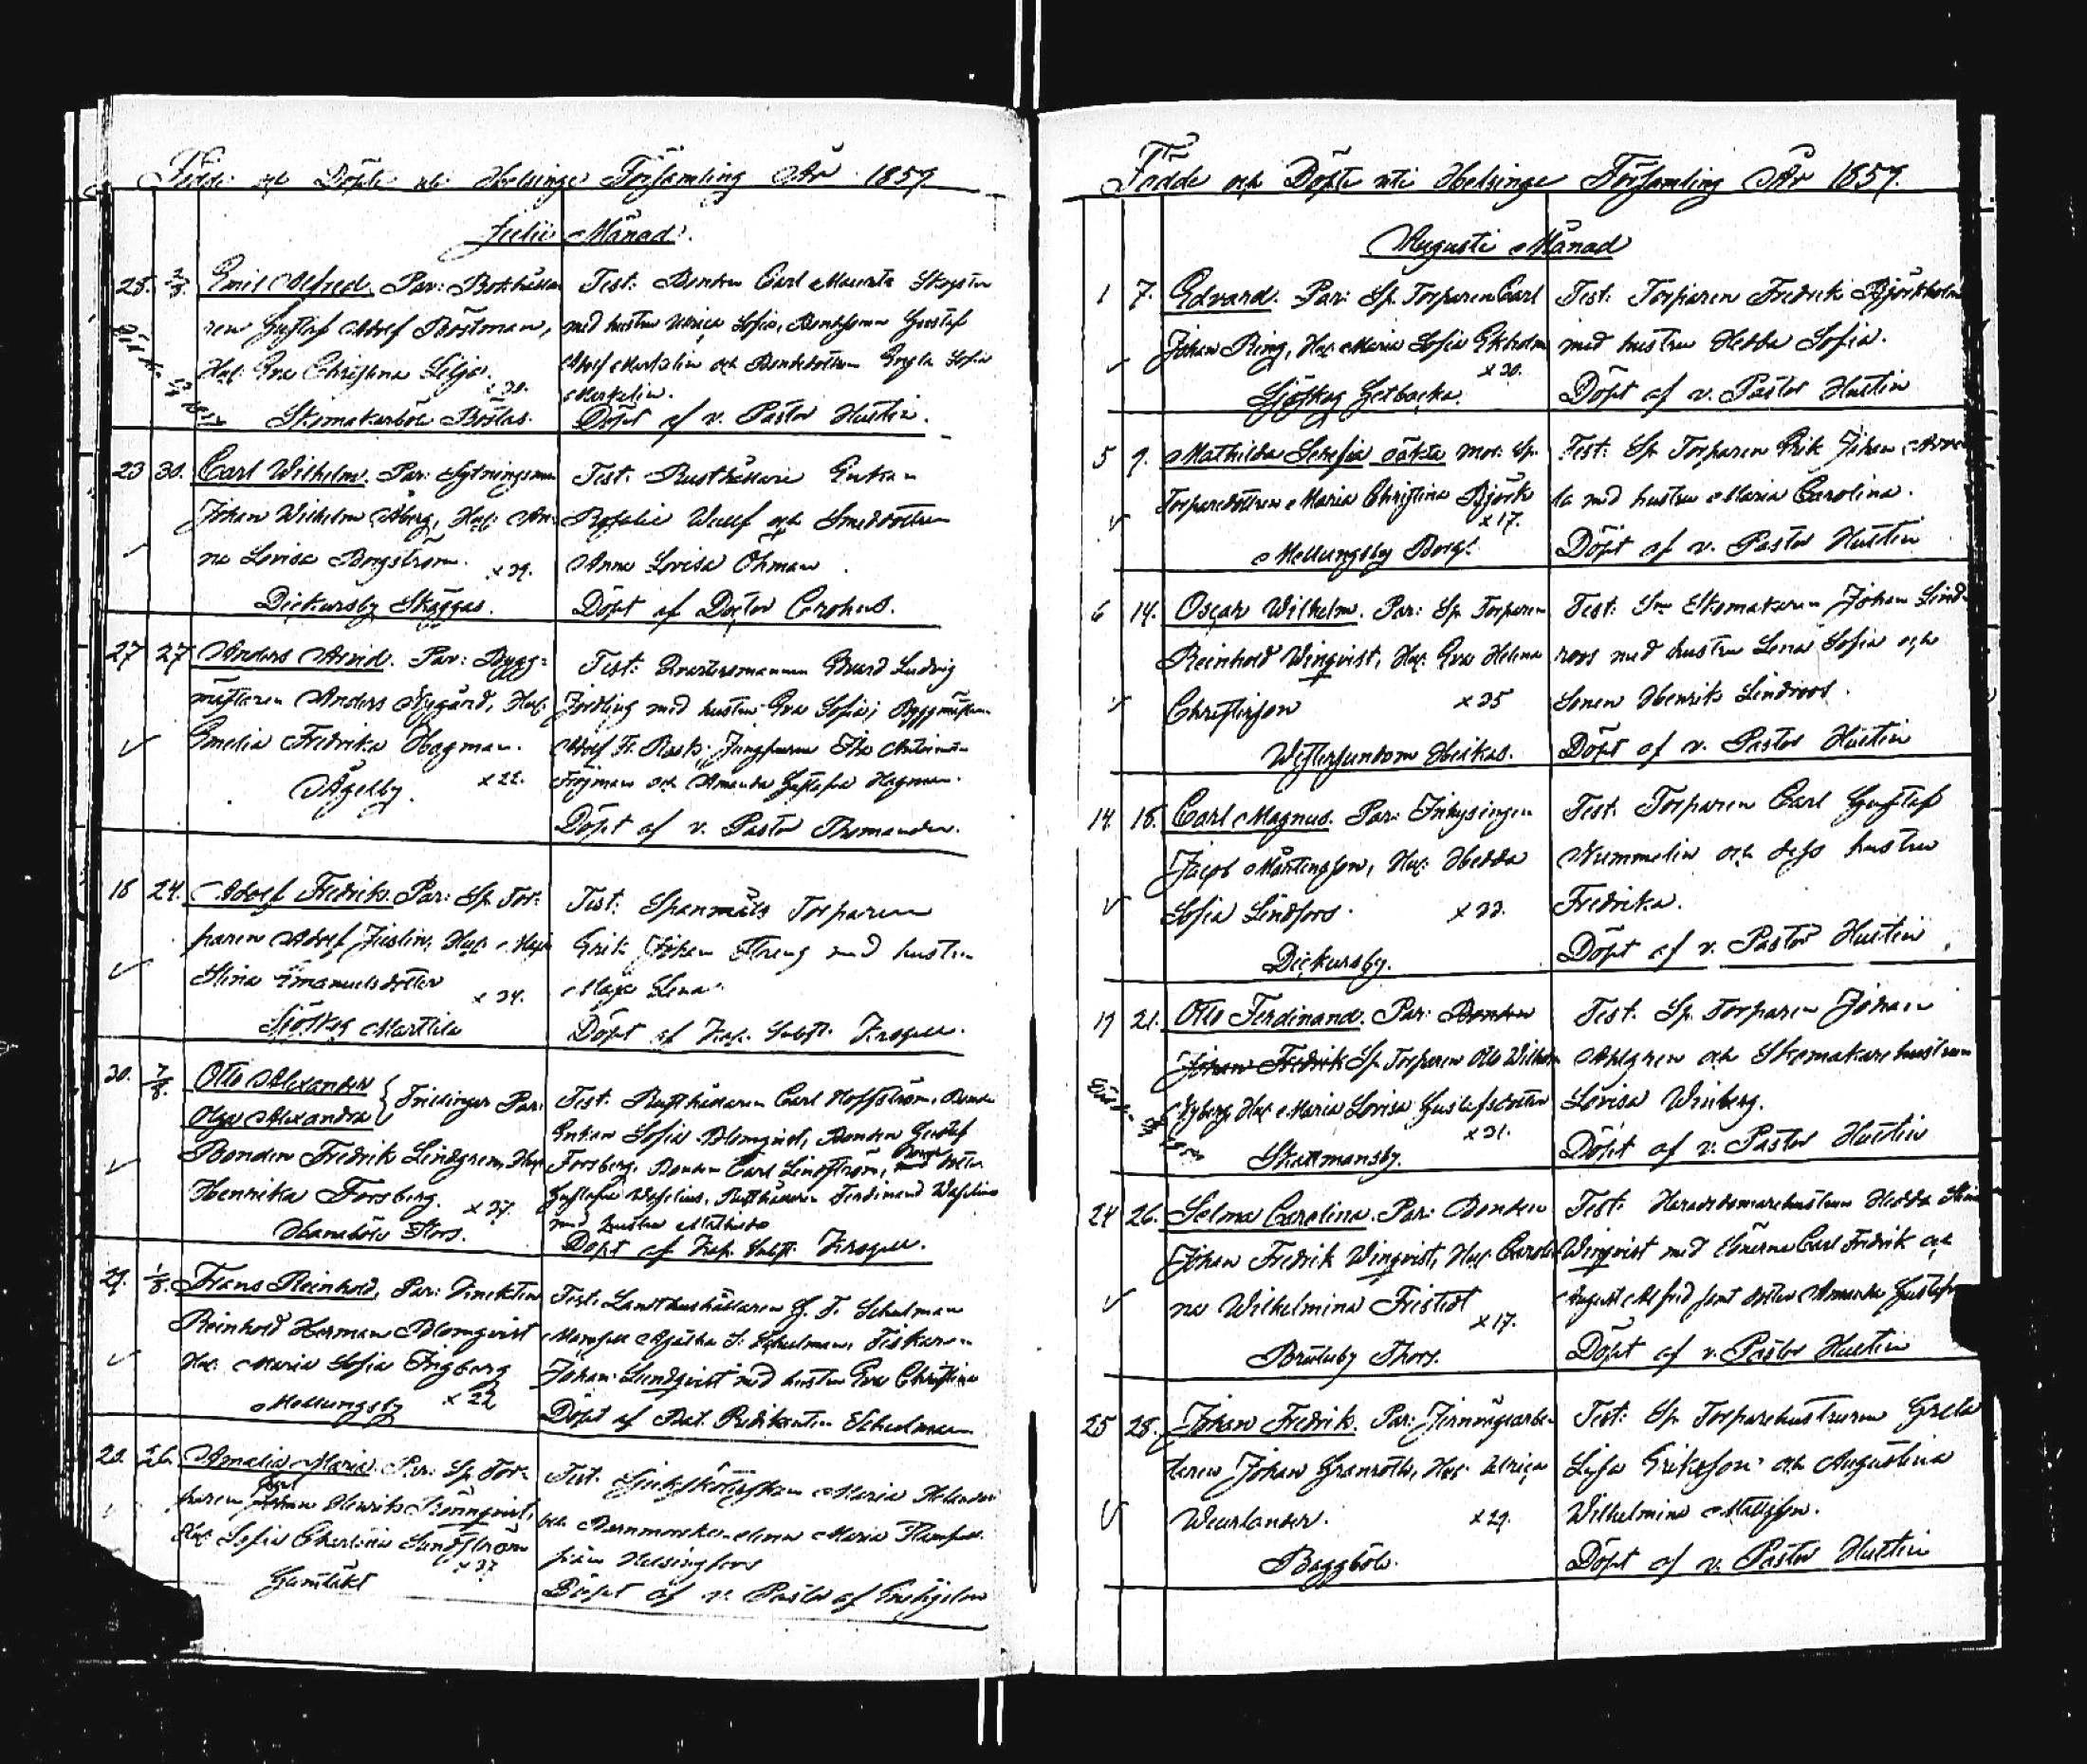 Födde och Döpte uti Helsinge Församling År 1857.
Julii Månad.
28. 2/8. Emil Alfred. Par: Bokhålla
ren Gustaf Adolf Böstman,
Hus: Eva Christina Lilja.
Skomakarböle Böslas.
Test: Bonden Carl Maurits
med hustru Ulrica Sofia, Gustaf
Adolf och Sofia
Döpt af v. Pastor Hultin.
23 30. Carl Wilhelm. Par: Sytningsman
Johan Wilhelm Åberg, Hus: An-
na Lovisa Borgström. x 39.
Dickursby Skäggas.
Test: Rusthållare Enkan
Rosalie Wulff och Smeddottren
Anna Lovisa Öhman
Döpt af Doctor Crohns.
27 27 Anders Arvid. Par: Bygg-
mästaren Anders Nygård, Hus:
Emelia Fredrika Hagman.
x 22.
Ågelby.
Test: Edvard Ludvig
med hustru Eva Sofia; Byggmästaren
Adolf Fr. Rask; Jungfrurna
och Amanda Gustafva Hagman.
Döpt af v. Pastor Thomander.
18 24. Adolf Fredrik. Par: Sp. Tor-
paren Adolf Hus: Maja
Stina Emanuelsdotter x 34.
Sjöskog Marttila
Test: Spanmåls Torparen
Erik Johan Streng med hustru
Maja Lena.
Döpt af Kap. Subst. Krogell.
30. 7/8. Otto Alexander
Olga Alexandra Tvillingar Par:
Bonden Fredrik Lindgren, Hus:
Henrika Forsberg. x 37.
Hanaböle Fors.
Test. Rusthållaren Carl Hoffström, Bonde
Enkan Sofia Blomqvist, Bonden Gustaf
Forsberg, Bonden Carl Lindström,
Gustafva Waselius, Rusthållaren Ferdinand Waselius
med hustru Mathilda
Döpt af Kap. Subst. Krogell.
29. 1/8. Frans Reinhold. Par:
Reinhold Herman Blomqvist
Hus: Maria Sofia
Mellungsby x 22
Test: Landthushållaren G. F. Schulman
Mamsell Agatha S. Schulman, Fiskaren
Johan Lundqvist med hustru Eva Christina
Döpt af Bat. Predikanten Schulman
20. 26. Amalia Maria. Par: Sp. Tor-
paren Henrik Rönnqvist,
Hus: Sofia Charlotta Sundström
x 37
Gumtäkt
Test. Maria
och Barnmorske Maria
från Helsingfors
Döpt af v. Pastor af Enehjelm
Födde och Döpte uti Helsinge Församling År 1857.
Augusti Månad
1 7. Edvard. Par: Sp. Torparen Carl
Johan Ring, Hus: Maria Sofia Ekholm
x 30.
Sjöskog Getbacka.
Test: Torparen Fredrik Björkholm
med hustru Hedda Sofia.
Döpt af v. Pastor Hultin
5 9. Mathilda Sofia oäkta Mod: Sp.
Torparedottren Maria Christina Björk
x 17.
Mellungsby Borgs.
Test: Sp. Torparen Erik Johan
med hustru Maria Carolina.
Döpt af v. Pastor Hultin
6 14. Oscar Wilhelm. Par: Sp. Torparen
Reinhold Winqvist, Hus: Eva Helena
Christersson x 35
Westersundom Heikas.
Test: Sn Skomakaren Johan Lind-
roos med hustru Lena Sofia och
Sonen Henrik Lindroos.
Döpt af v. Pastor Hultin
14. 18. Carl Magnus. Par: Inhysingen
Jacob Mårtensson, Hus: Hedda
Sofia Lindfors. x 33.
Dickursby.
Test. Torparen Carl Gustaf
Nummelin och dess hustru
Fredrika.
Döpt af v. Pastor Hultin
19 21. Otto Ferdinand. Par: Bonden
Johan Fredrik Sp. Torparen Otto Wilhelm
Nyberg Hus: Maria Lovisa Gustafsdotter
x 31.
Skattmansby.
Test. Sp. Torparen Johan
Ahlgren och Skomakarehustrun
Lovisa Winberg.
Döpt af v. Pastor Hultin
24 26. Selma Carolina. Par: Bonden
Johan Fredrik Winqvist, Hus: Caroli-
na Wilhelmina Feistedt
x 17.
Brutuby Thors.
Test: Häradsdomarehustrun Hedda Stina
Winqvist med Sönerna Carl Fredrik och
August Alfred samt dotter Amanda Gustafva
Döpt af v. Pastor Hultin
25 28. Johan Fredrik. Par: Jernvägsarbe-
taren Johan Granroth, Hus: Ulrica
Weurlander. x 29.
Baggböle.
Test: Sp. Torparehustrurna Greta
Lisa Eriksson och Augustina
Wilhelmina Mattsson.
Döpt af v. Pastor Hultin